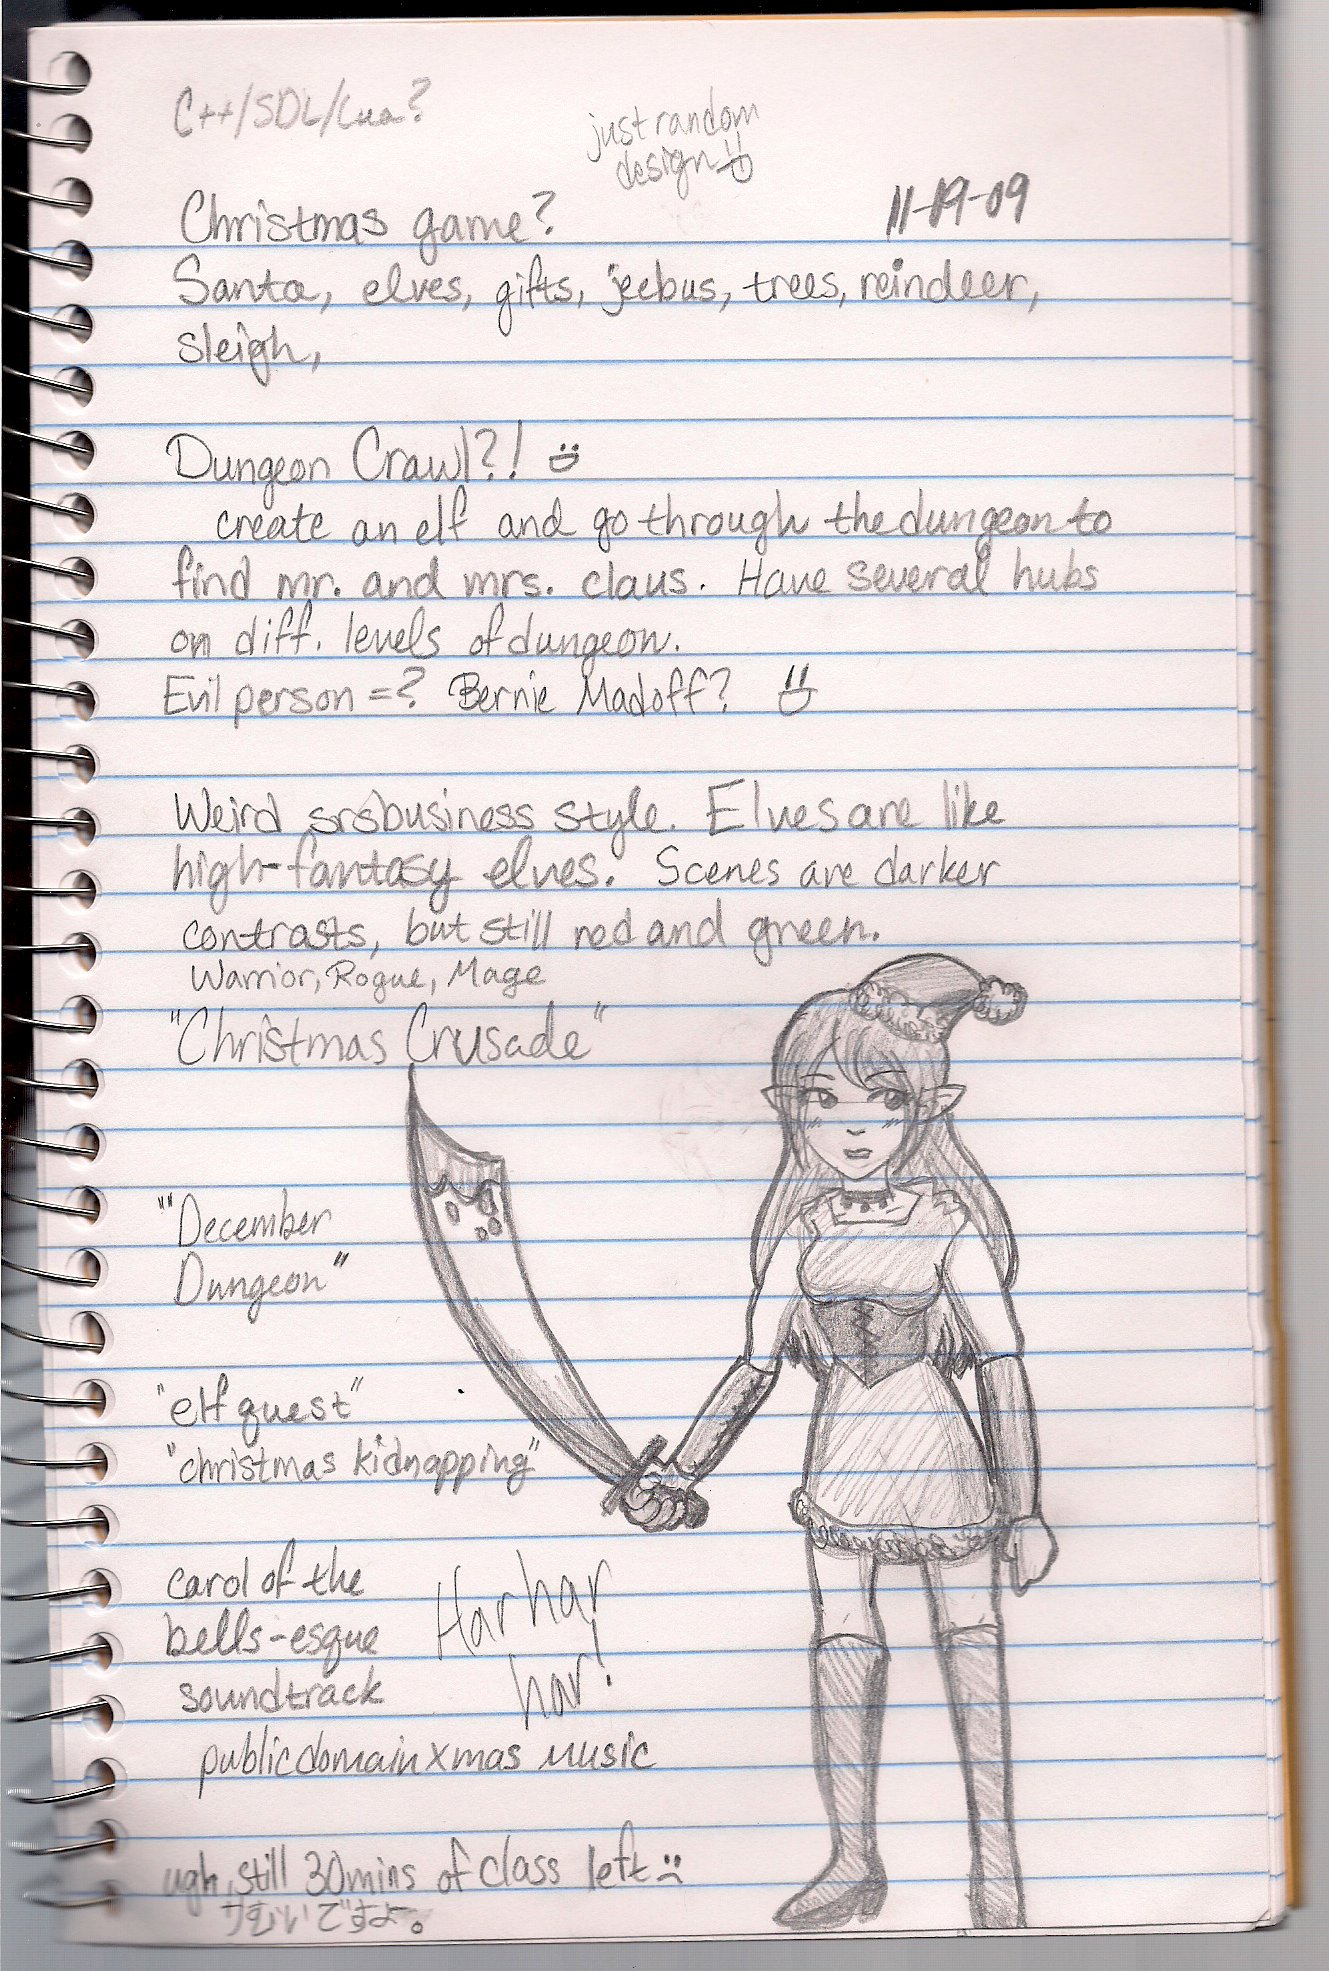 C++/SDL/Lua?
just random
design
11-19-09
Christmas game?
Santa, elves, gifts, jeebus, trees, reindeer,
sleigh,
Dungeon Crawl?! :D
create an elf and go through the dungeon to
find mr. and mrs. claus. Have several hubs
on diff. levels of dungeon.
Evil person =? Bernie Madoff? :D
Weird srsbusiness style. Elves are like
high-fantasy elves. Scenes are darker
contrasts, but still red and green.
Warrior, Rogue, Mage
"Christmas Crusade"
""December
Dungeon"
"elf quest"
"christmas kidnapping"
carol of the
bells-esque
soundtrack
Har har
har!
public domain xmas music
ugh, still 30mins of class left :(
さむいですよ。